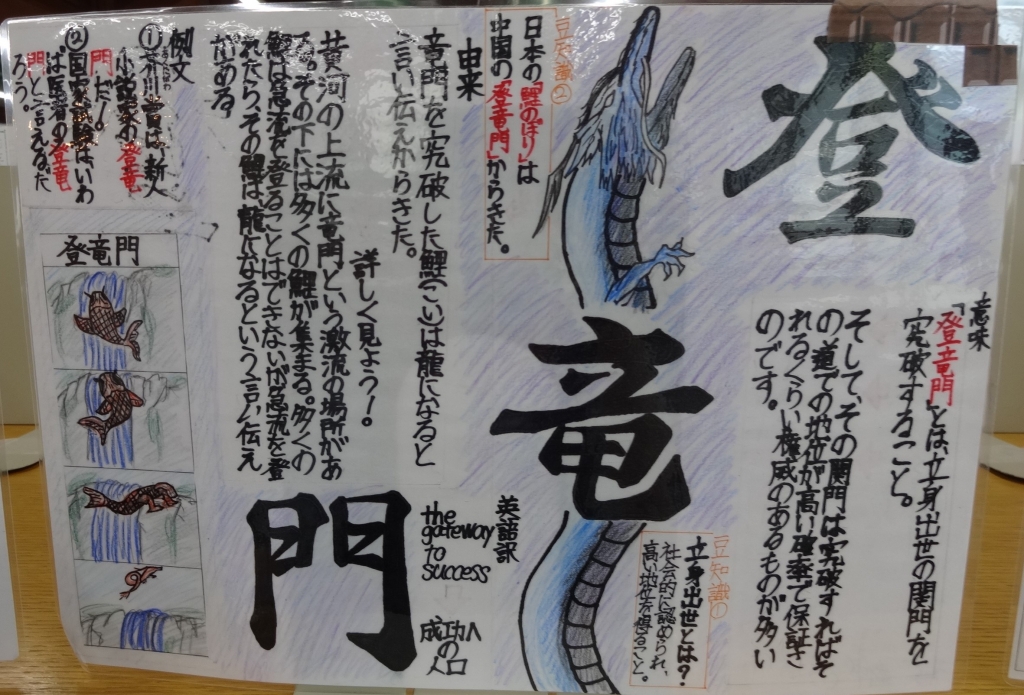 登
竜
門
意味
「登竜門」とは、立身出世の関門を
突破すること。
そして、その関門は突破すればそ
の道での地位が高い確率で保証さ
れるくらい権威のあるものが多い
のです。
豆知識①
立身出世とは?
社会的に認められ、
高い地位を得ること。
豆知識②
日本の「鯉のぼり」は
中国の「登竜門」からきた。
英語訳
the
gateway
to
success
成功へ
の
入口
由来
竜門を突破した鯉(こい)は龍になると
言い伝えからきた。
詳しく見よう!。
黄河の上流に竜門という激流の場所があ
る。その下には多くの鯉が集まる。多くの
鯉は急流を登ることはできないが急流を登
れたら、その鯉は、龍になるという言い伝え
がある
例文
①芥川賞は、新人
小説家の登竜
門だ。
②国家試験はいわ
ば医者の登竜
門と言えるだ
ろう。
登竜門